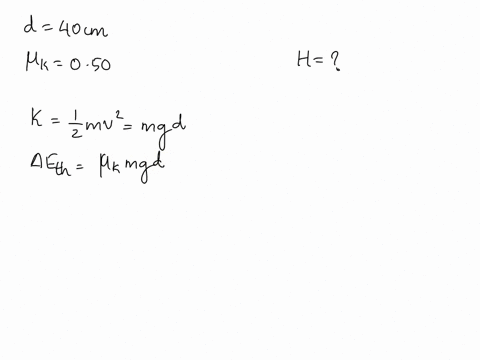 d = 40cm
μk = 0.50
H = ?
K = 1/2 mv² = mgd
ΔEth = μk mgd